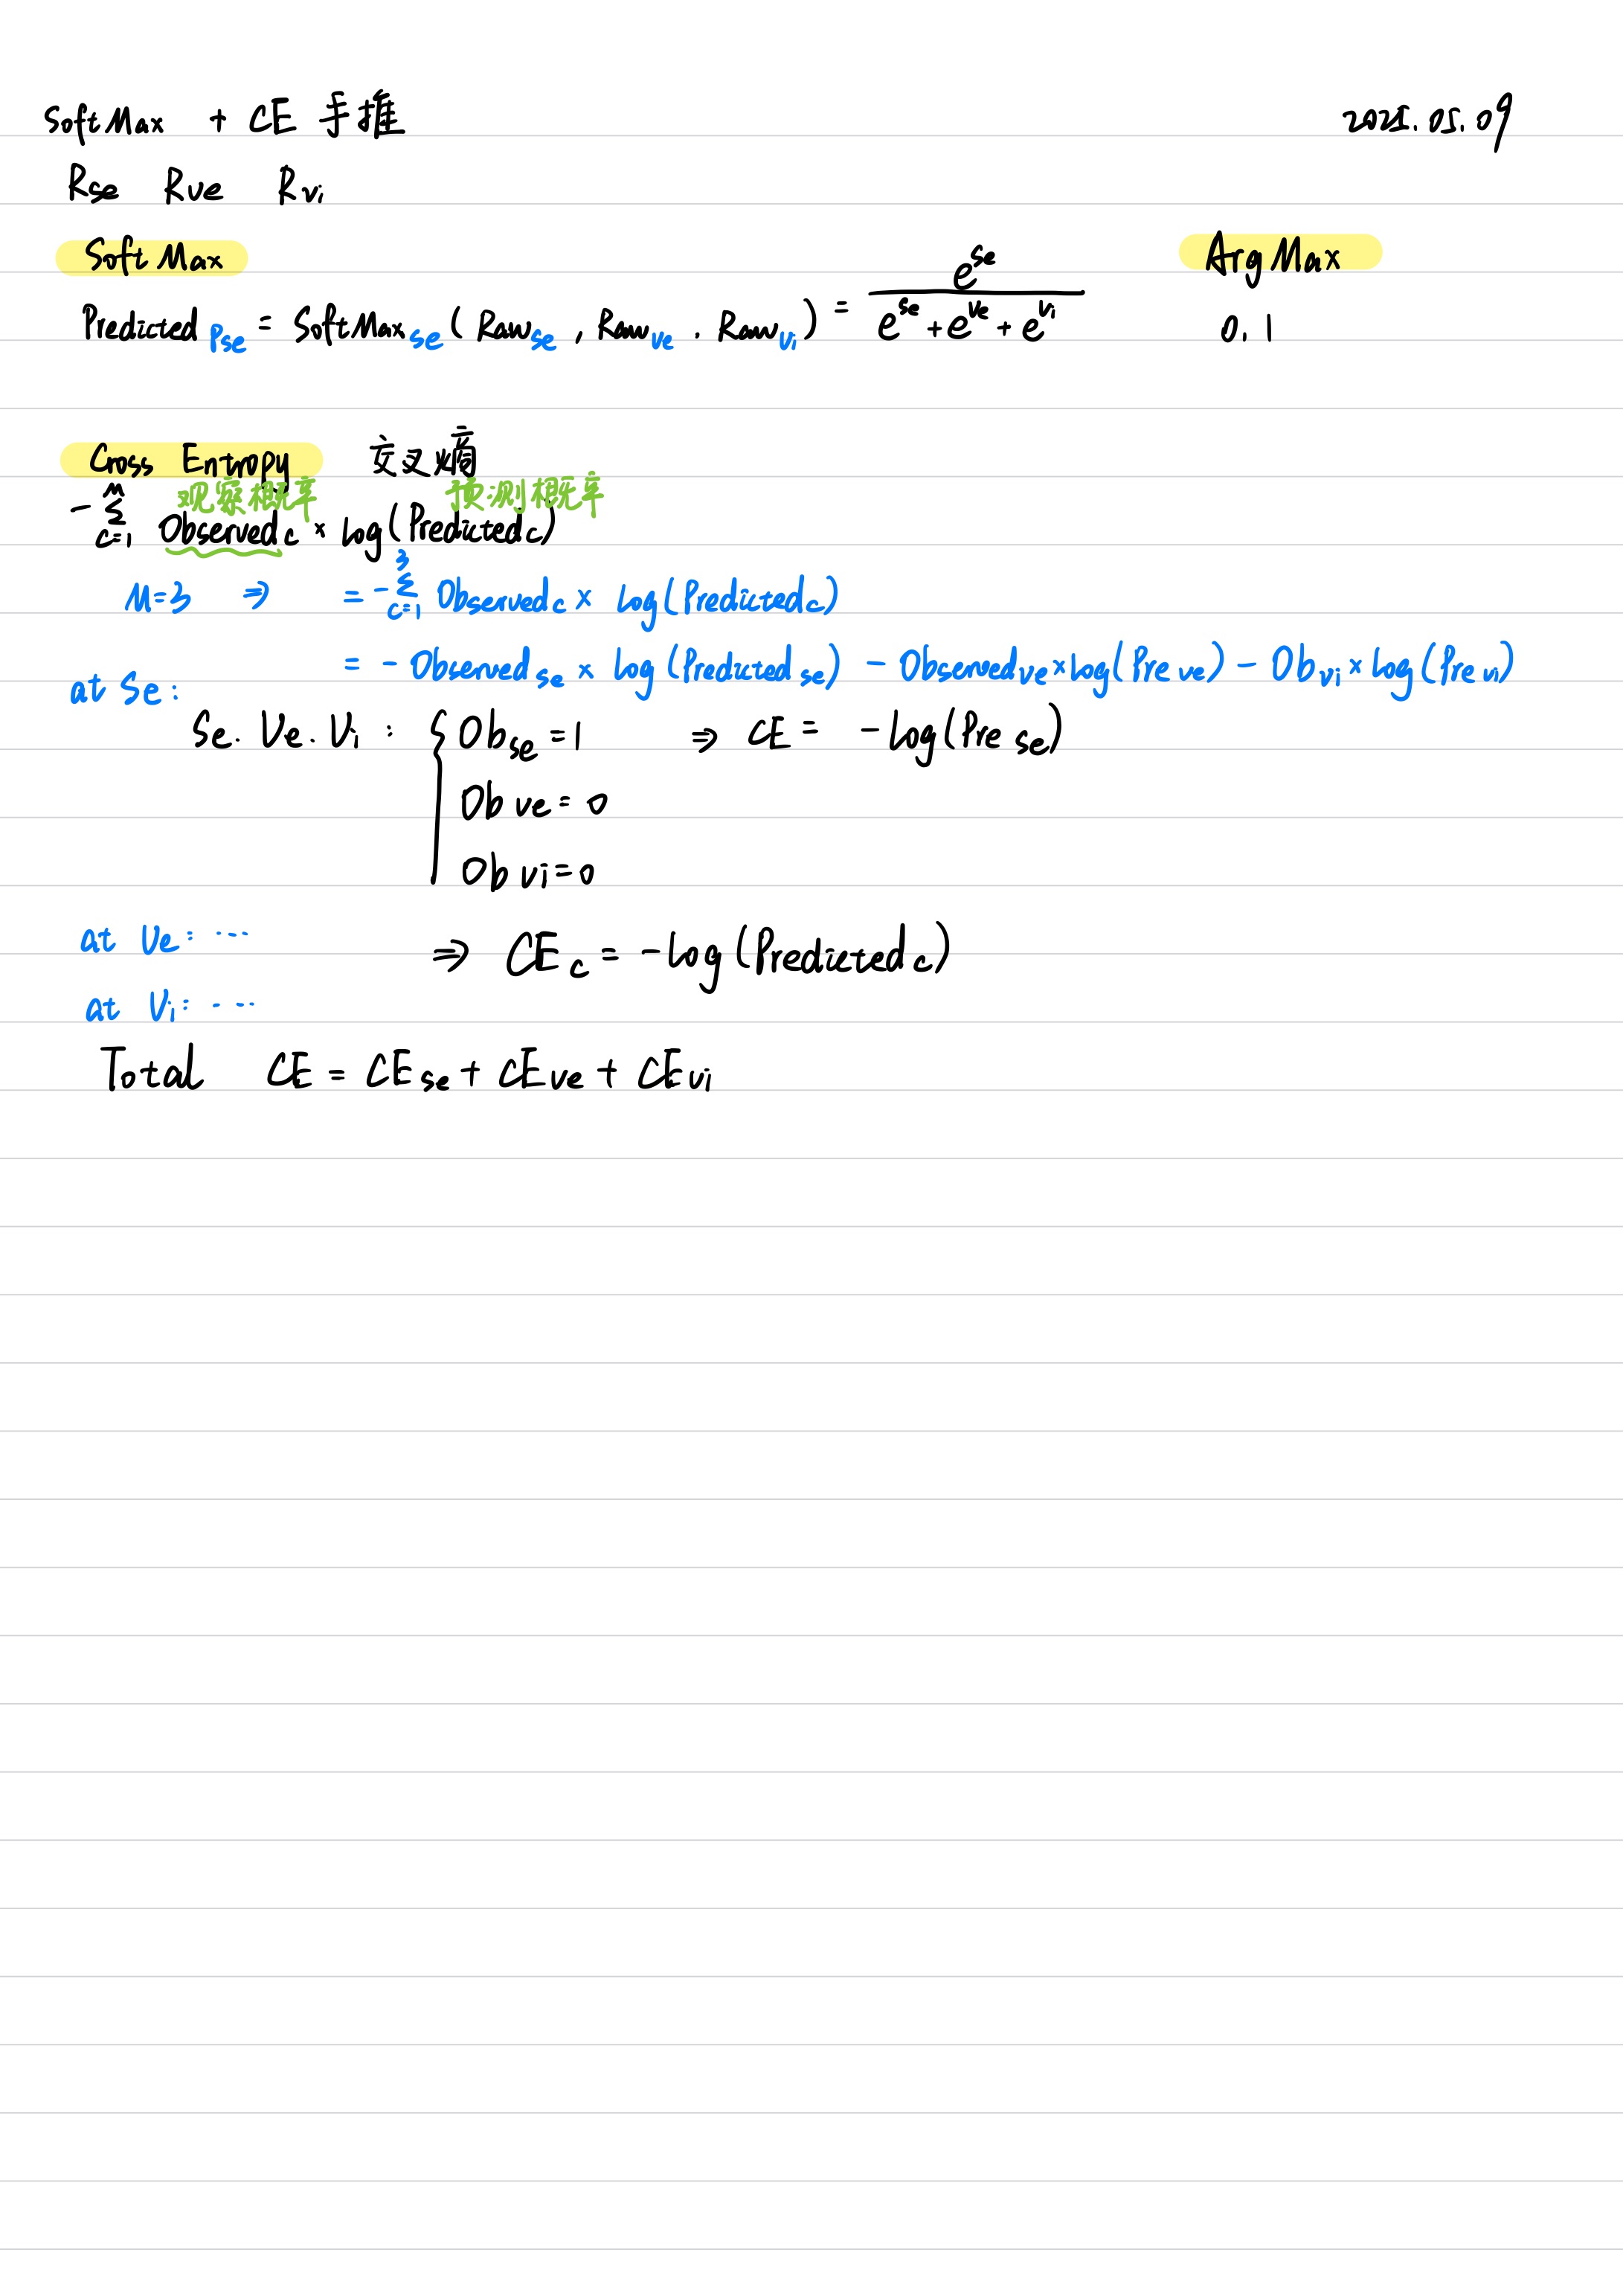 SoftMax + CE 手推 2025.05.09
Rse Rve Rvi
SoftMax ArgMax
Predicted Pse = SoftMax se ( Raw se , Raw ve . Raw vi ) = e^se / (e^se + e^ve + e^vi) 0. 1
Cross Entropy 交叉熵
观察概率 预测概率
- Σ_{c=1}^{M} Observed c × log(Predicted c)
M=3 ⇒ = - Σ_{c=1}^{3} Observed c × log(Predicted c)
= - Observed se × log(Predicted se) - Observed ve × log(Pre ve) - Ob vi × log(Pre vi)
at Se:
Se. Ve. Vi : { Ob se = 1 ⇒ CE = -log(Pre se)
Ob ve = 0
Ob vi = 0
at Ve: ...
⇒ CE c = -log(Predicted c)
at Vi: ...
Total CE = CE se + CE ve + CE vi